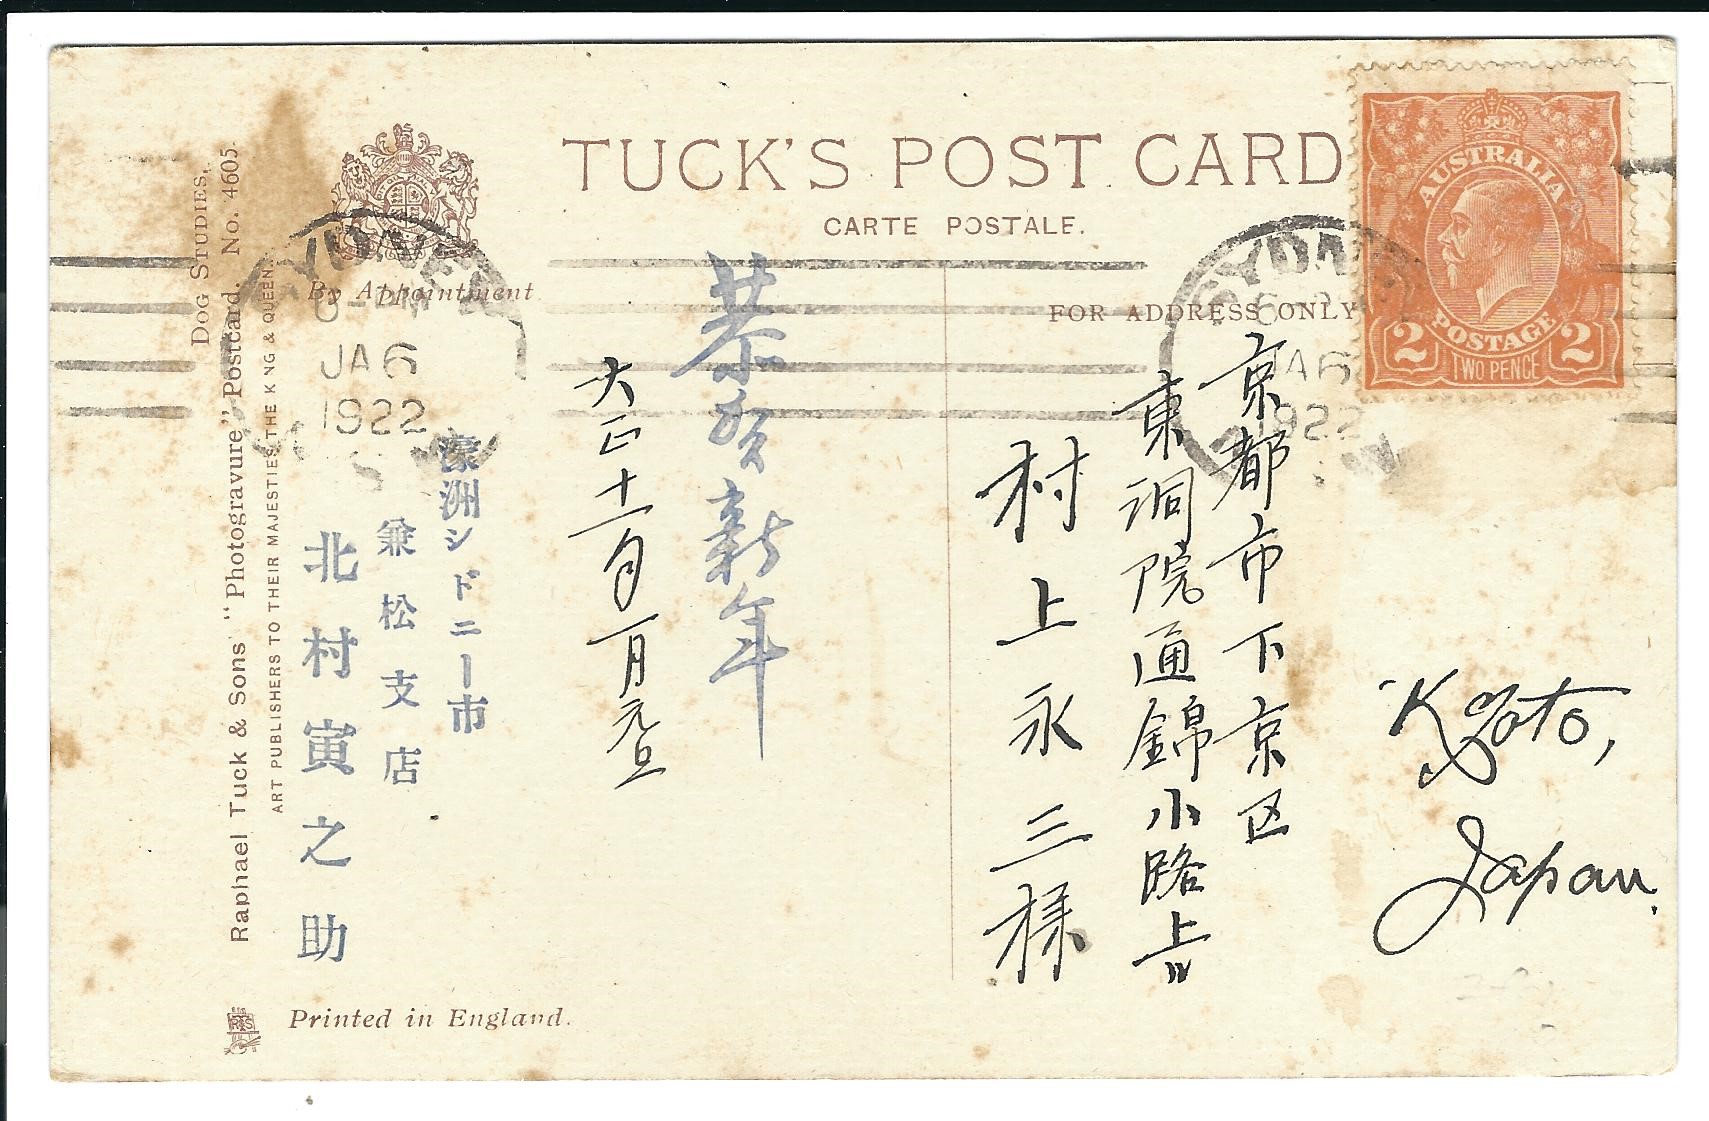 TUCK'S POST CARD
CARTE POSTALE.
By Appointment
FOR ADDRESS ONLY
AUSTRALIA
2 POSTAGE 2
TWO PENCE
SYDNEY
JA 6
1922
SYDNEY
JA 6
1922
京都市下京区
東洞院通錦小路上ル
村上永三様
Kyoto,
Japan.
恭賀新年
大正十一年一月元旦
濠洲シドニー市
兼松支店
北村寅之助
DOG STUDIES,
Raphael Tuck & Sons' "Photogravure" Postcard. No. 4605.
ART PUBLISHERS TO THEIR MAJESTIES THE KING & QUEEN.
Printed in England.